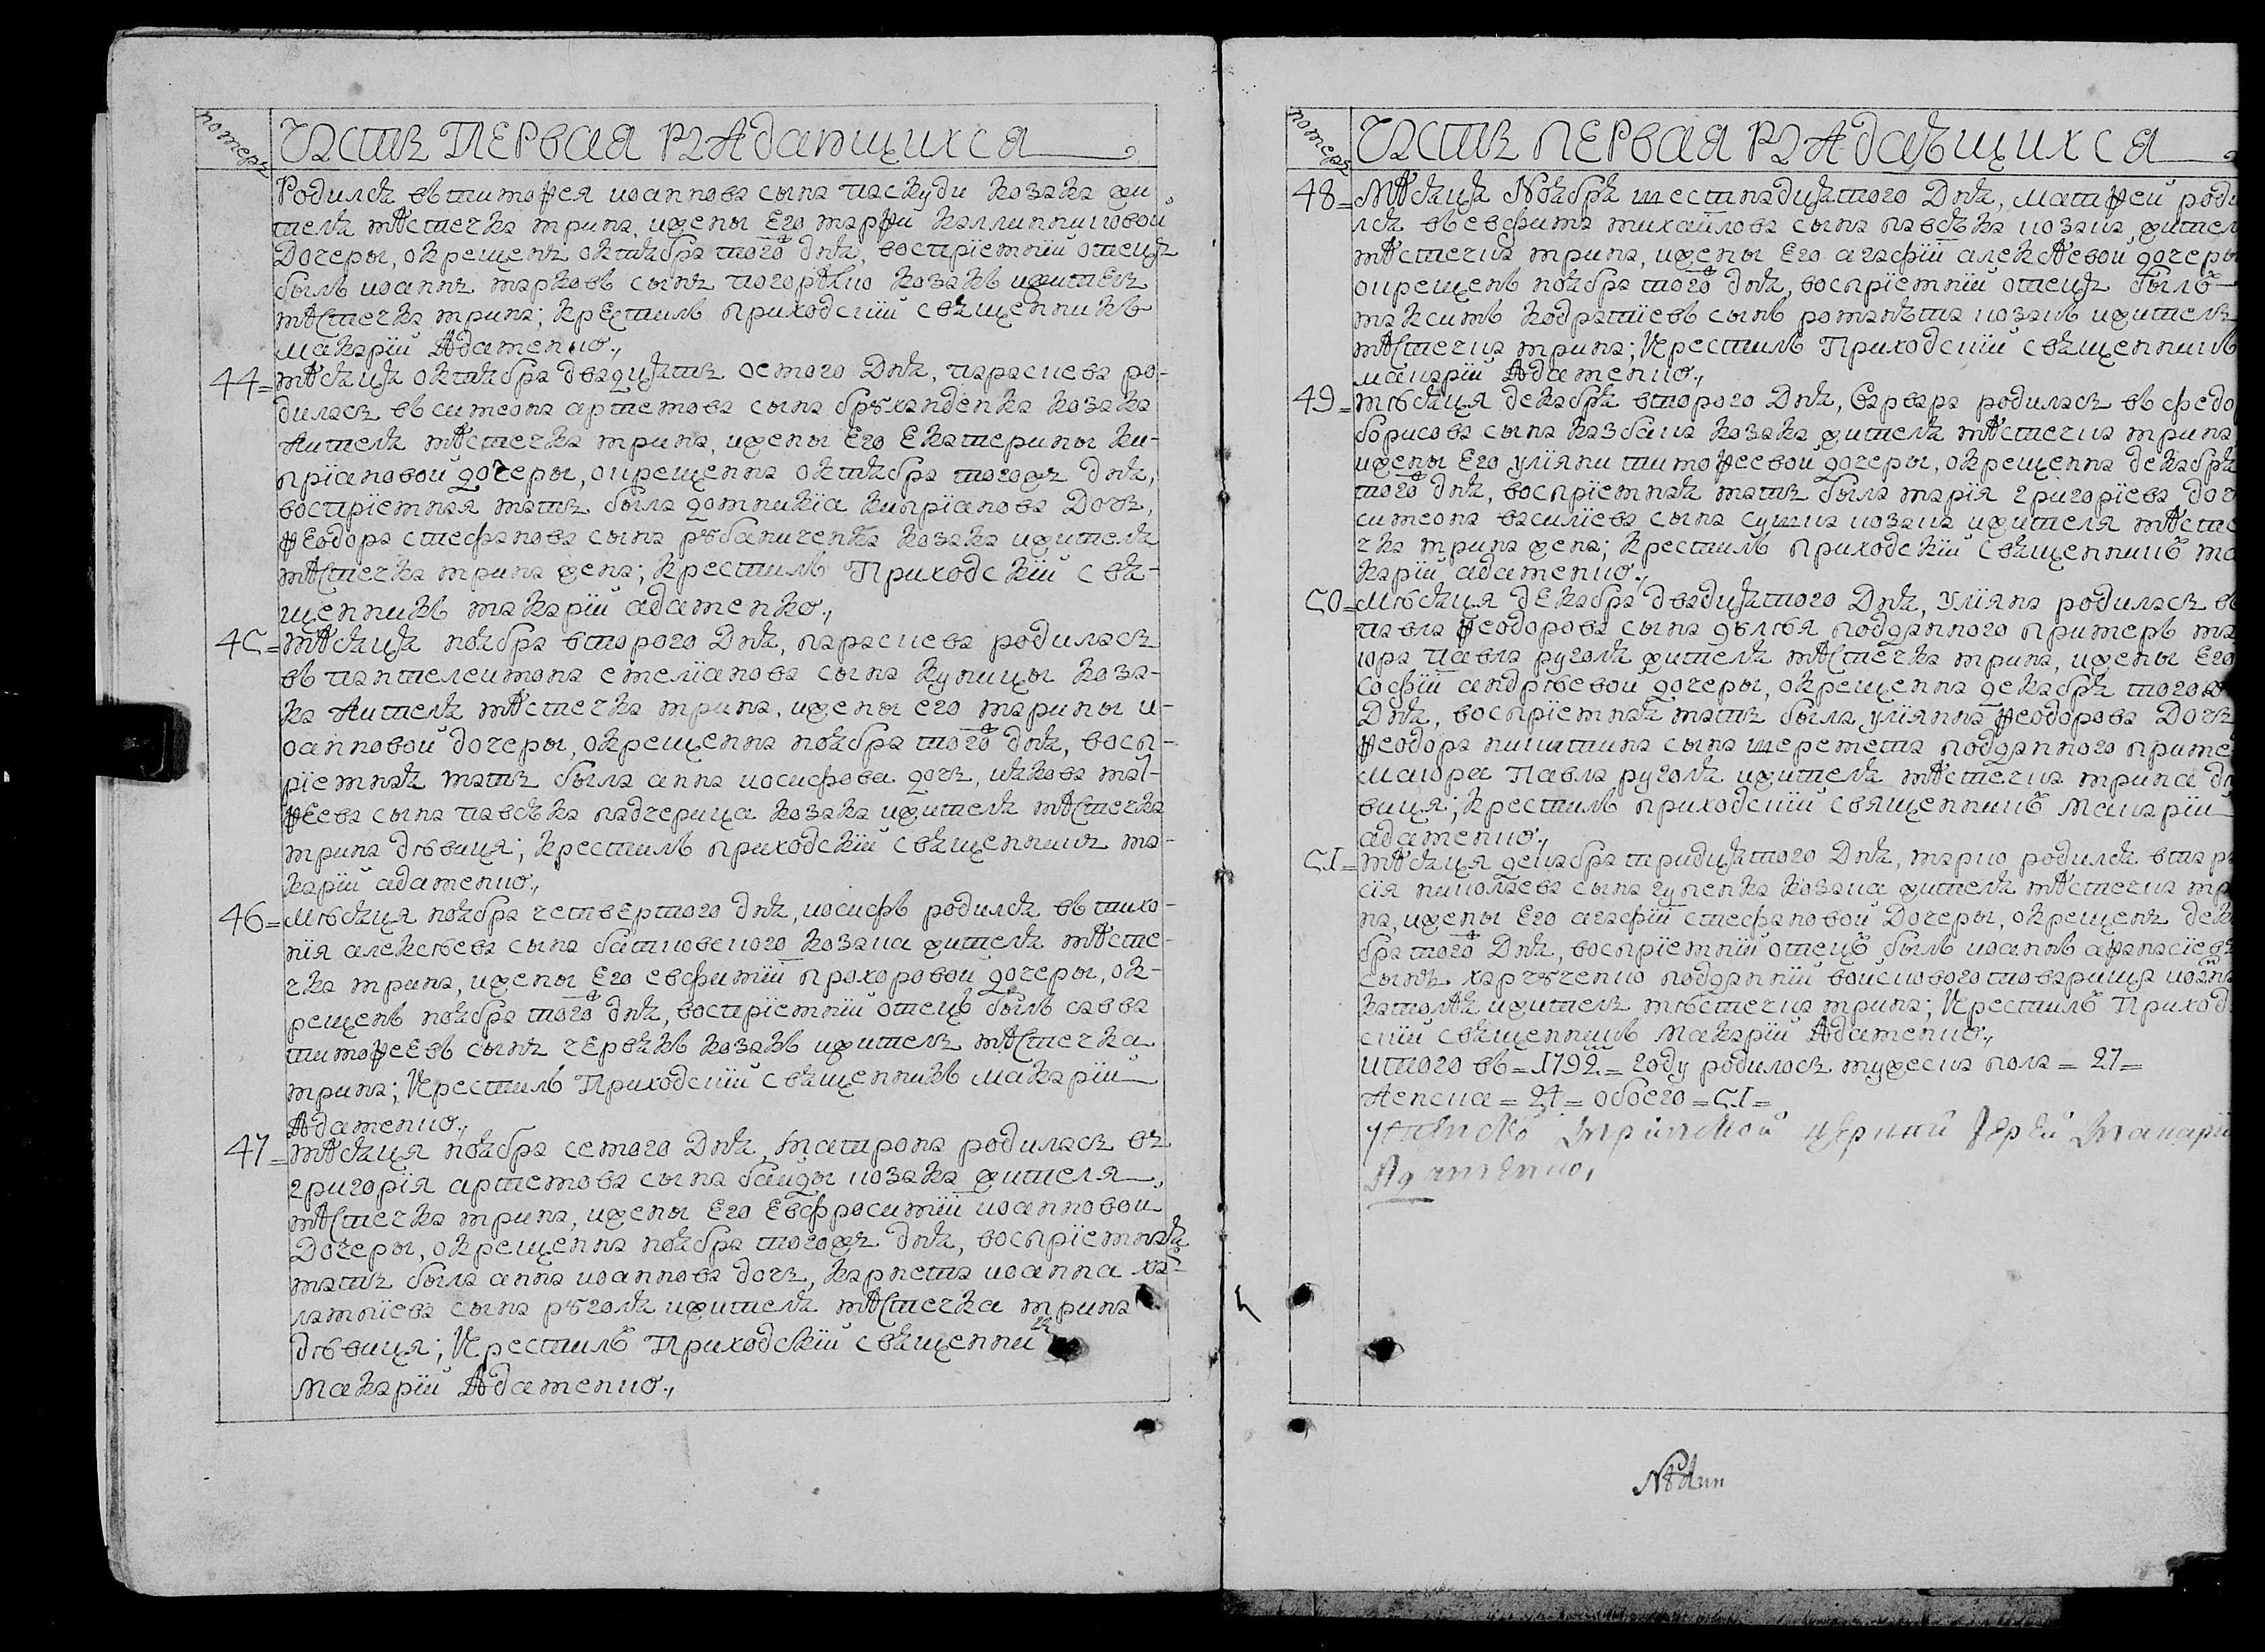 номеръ
ЧАСТЬ ПЕРВАЯ РАЖдающихся
Родился въ тимоѳея иоаннова сына паскуди козака жи-
теля мѣстечка трипа, ижены Его марѳи каллинниковой
Дочеры, окрещенъ октября того ж дня, восприемний отецъ
былъ иоаннъ марковъ сынъ погорѣлко козакъ ижитель
мѣстечка мрина; крестилъ приходский священникъ
макарїй Адаменко.,
44= мѣсяця октября двадцять осмого Дня, параскева ро-
дилась въ симеона артемова сына бруханденка козака
жителя мѣстечка мрина, ижены Его Екатерины ки-
прїановой дочеры, окрещенна октября тогожъ дня,
восприемная мать была домникїа кипрїанова Дочь,
Ѳеодора стефанова сына рубаниченка козака ижителя
мѣстечка мрина жена; крестилъ Приходскїй свя-
щенникъ макарїй адаменко.,
45= мѣсяця ноября второго Дня, параскева родилась
въ пантелеимона емелїанова сына куницы коза-
ка жителя мѣстечка мрина, ижены его марины и-
оанновой дочеры, окрещенна ноября того ж дня, восп-
рїемная мать была анна иосифова дочь, якова мат-
ѳеева сына павсѣка падчерица козака ижителя мѣстечка
мрина дѣвиця; крестилъ приходскїй священникъ ма-
карїй адаменко.,
46= Мѣсяця ноября четвертого дня, иосифъ родился въ тихо-
нїя алексѣева сына батковского козака жителя мѣсте-
чка мрина, ижены Его евфимїй прохоровой дочеры, ок-
рещенъ ноября того ж дня, восприемнїй отецъ былъ савва
тимоѳеевъ сынъ червякъ козакъ ижитель мѣстечка
мрина; Крестилъ Приходскїй священникъ макарїй
Адаменко.,
47= мѣсяця ноября семого Дня, матрона родилась въ
григорїя артемова сына байды козака жителя
мѣстечка мрина, ижены Его Евфросимїй иоанновой
Дочеры, окрещенна ноября тогожъ дня, восприемная
мать была анна иоаннова дочь, карнета иоанна ха-
лампїева сына руголя ижителя мѣстечка мрина
дѣвиця; Крестилъ Приходскїй священникъ
Макарїй Адаменко.,
номеръ
ЧАСТЬ ПЕРВАЯ РАЖдающихся
48= Мѣсяця Ноября шестнадцятого Дня, матѳей роди
лся въ евфима михайлова сына павсѣка козака жител
мѣстечка мрина, ижены Его агафїй алексѣевой дочеры
окрещенъ ноября того ж дня, восприемнїй отецъ былъ
максимъ кодратїевъ сынъ романѣта козакъ ижитель
мѣстечка мрина; Крестилъ Приходскїй священникъ
макарїй Адаменко.,
49= мѣсяця декабря второго Дня, варвара родилась въ федо
борисова сына казбана козака жителя мѣстечка мрина
ижены Его улїяни тимоѳеевой дочеры, окрещенна декабря
того ж дня, восприемная мать была марїя григорїева доч
симеона василїева сына сушка козака ижителя мѣсте
чка мрина жена; крестилъ приходскїй священникъ ма
карїй адаменко.,
50= Мѣсяця декабра двадцятого Дня, Улїяна родилась въ
павла Ѳеодорова сына дѣлѣя подданного примеръ ма
иора Павла руголя жителя мѣстечка мрина, ижены Его
софїй андрѣевой дочеры, окрещенна декабря того ж
Дня, восприемная мать была улїянна Ѳеодорова Дочь
Ѳеодора никитина сына шеремета подданного приме
маиора Павла руголя ижителя мѣстечка мрина дѣ
виця; крестилъ приходскїй священникъ Макарїй
адаменко.,
51= мѣсяця декабра тридцятого Дня, марко родился втара
сїя николаева сына гуленка козака жителя мѣстечка мр
на, ижены Его агафїй стефановой Дочеры, окрещенъ дека
бра того ж Дня, восприемнїй отецъ былъ иоаннъ аѳанасїевъ
сынъ харчученко подданнїй войскового товарища иоанна
католя ижитель мѣстечка мрина; Крестилъ Приход
скїй священникъ Макарїй Адаменко.,
итого въ=1792=году родилось мужеска пола=27=
женска=24=обоего=51=
успенской мринской церкви Іерей Макарїй
Адаменко,